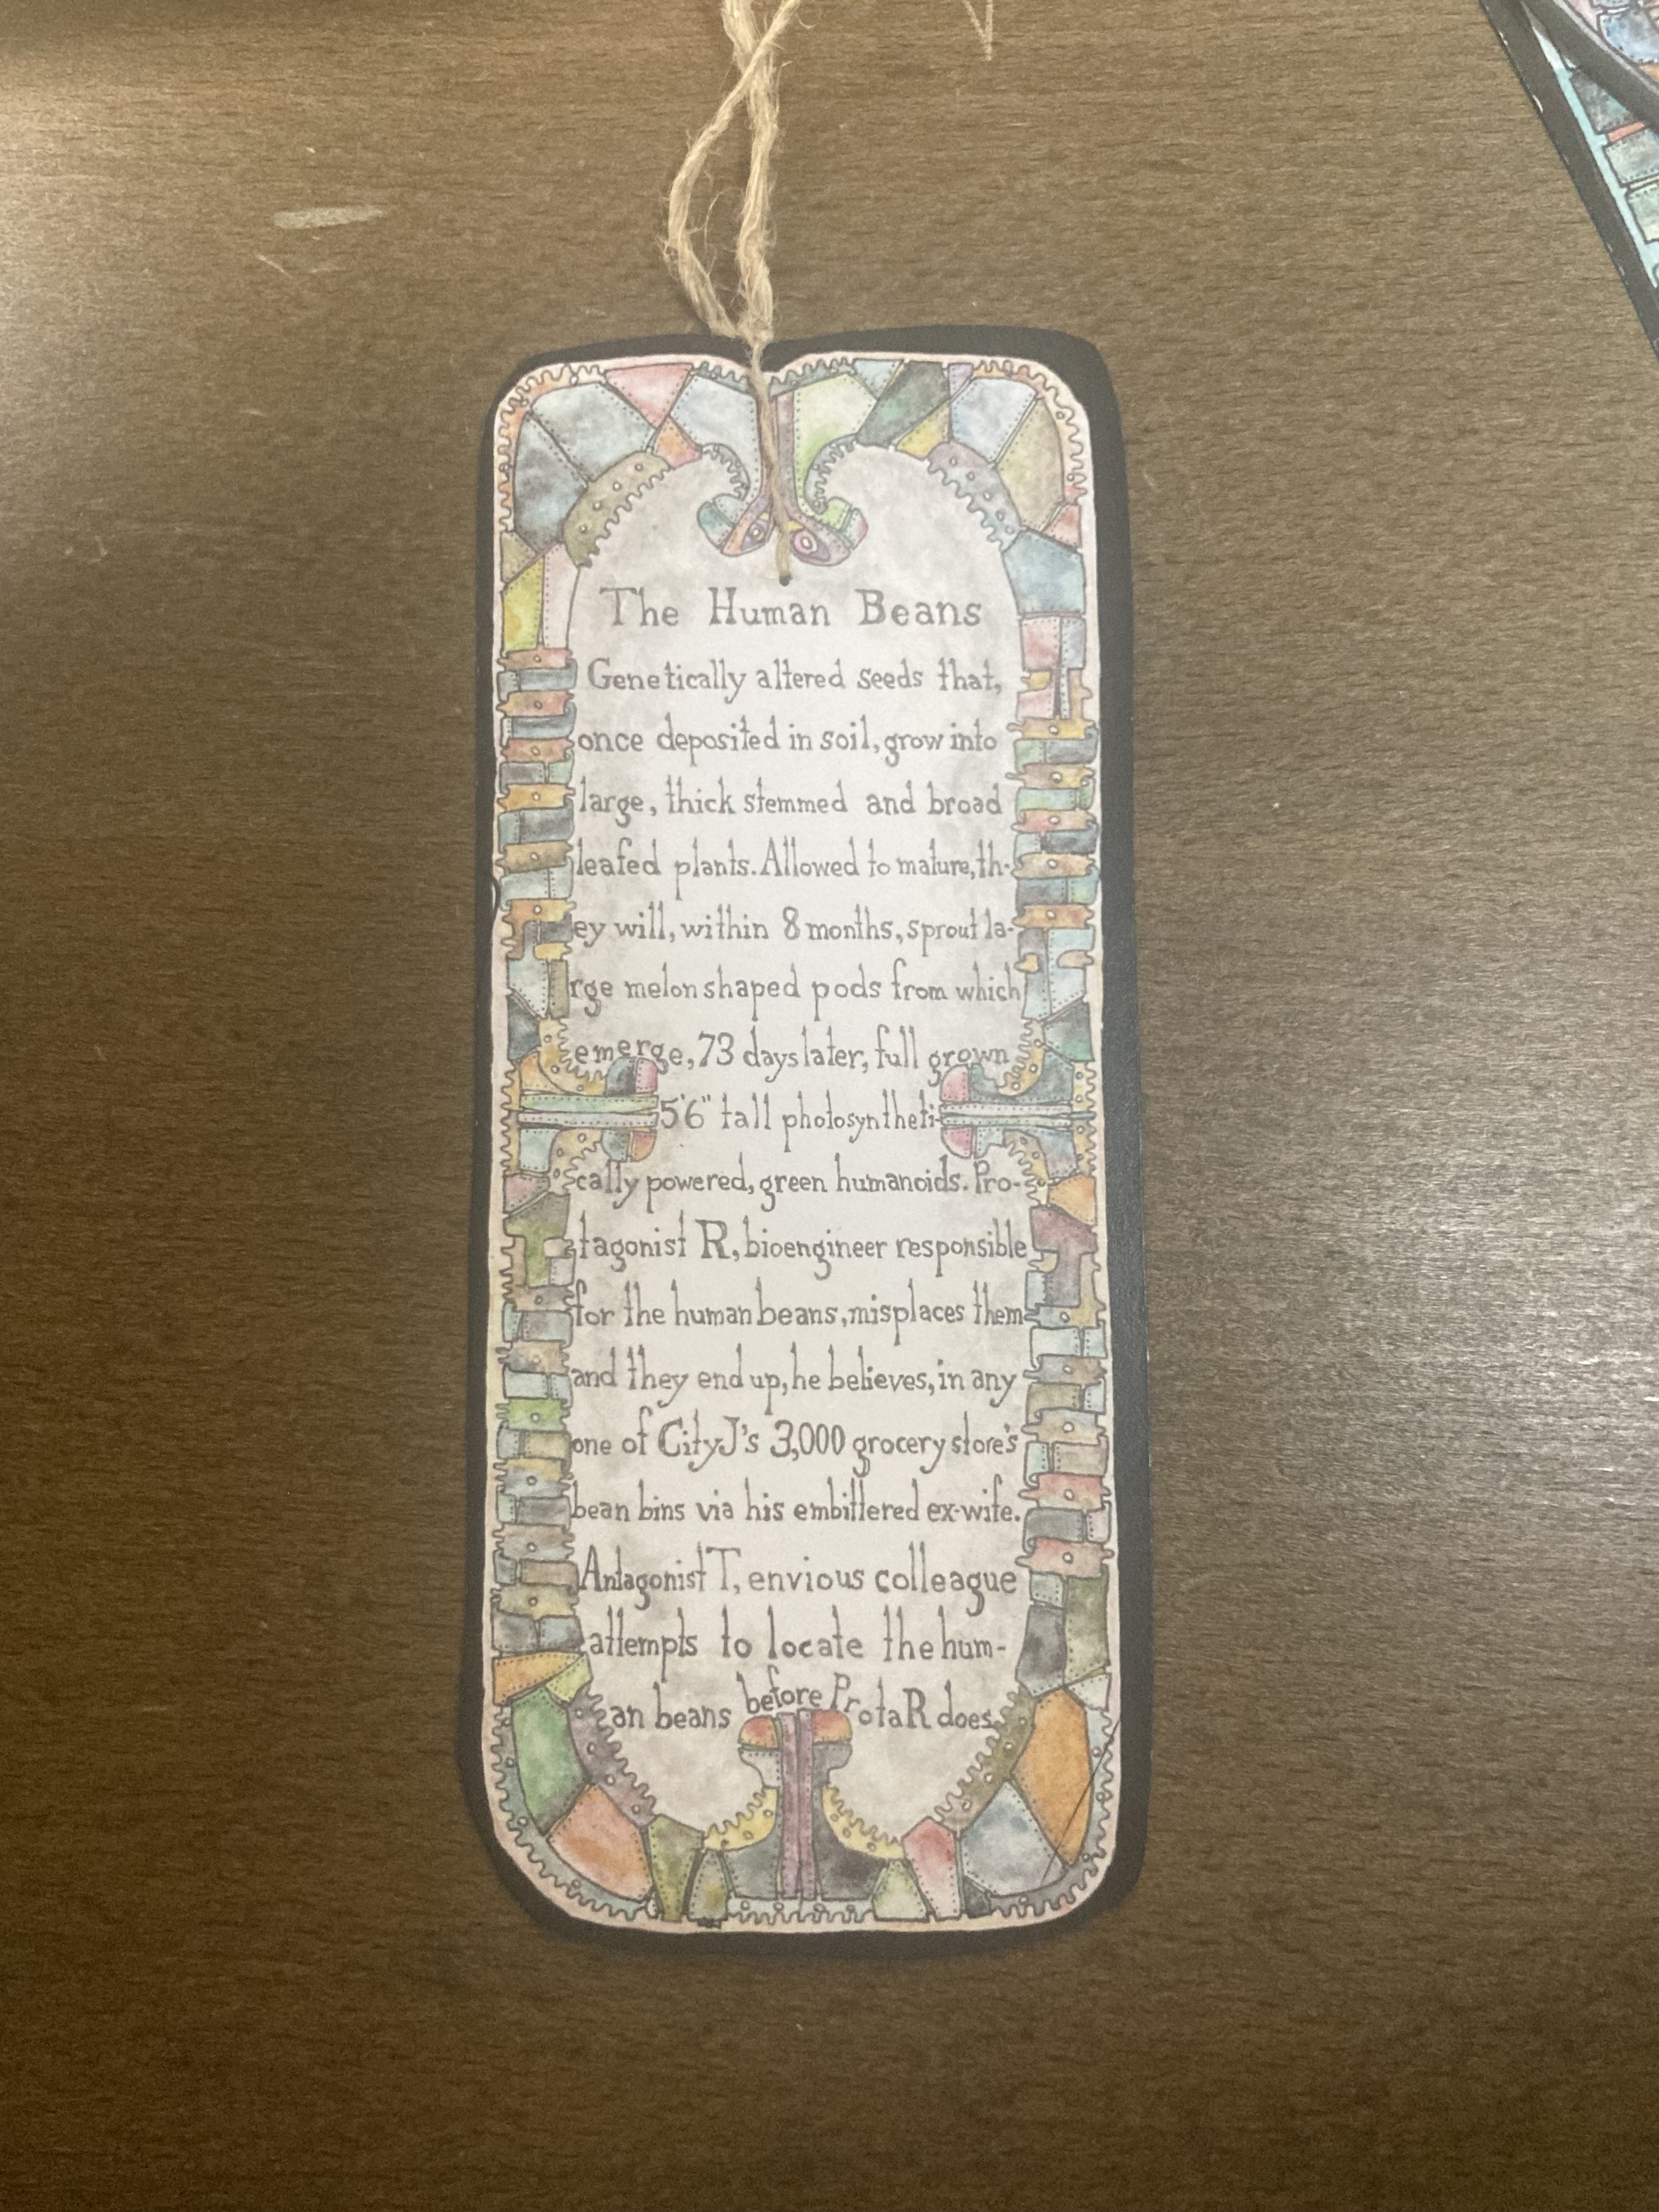 The Human Beans
Genetically altered seeds that,
once deposited in soil, grow into
large, thick stemmed and broad
leafed plants. Allowed to mature, th-
ey will, within 8 months, sprout la-
rge melon shaped pods from which
emerge, 73 days later, full grown
5'6" tall photosyntheti-
cally powered, green humanoids. Pro-
tagonist R, bioengineer responsible
for the human beans, misplaces them
and they end up, he believes, in any
one of CityJ's 3,000 grocery store's
bean bins via his embittered ex-wife.
Antagonist T, envious colleague
attempts to locate the hum-
an beans before Prota R does.